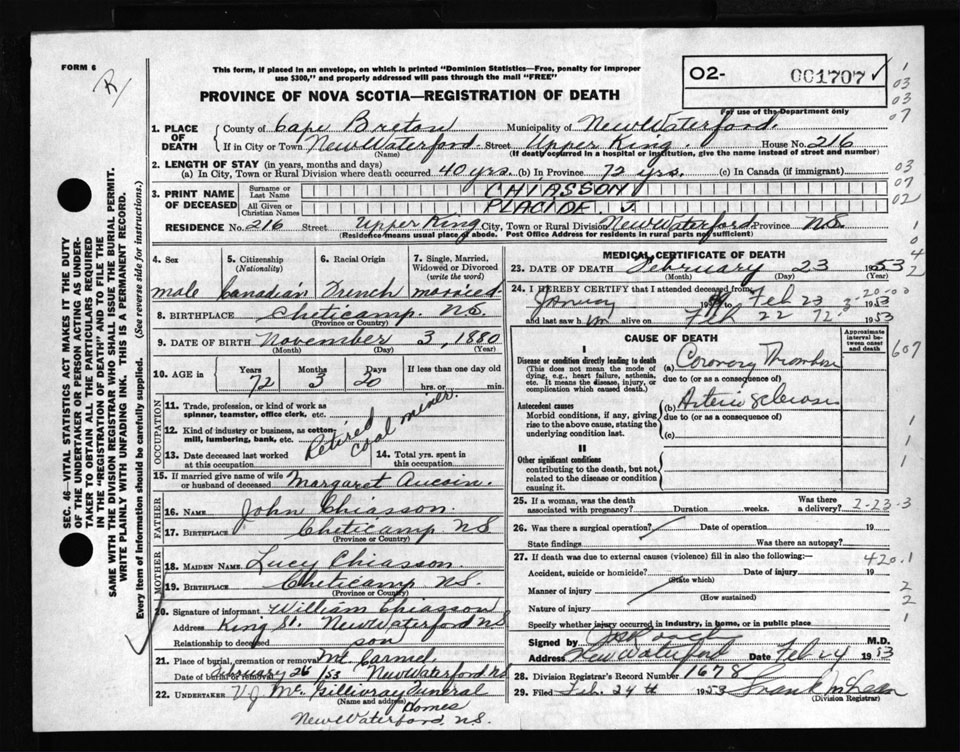 FORM 6
R
This form, if placed in an envelope, on which is printed "Dominion Statistics—Free, penalty for improper
use $300," and properly addressed will pass through the mail "FREE"
O2- 001707 ✓
For use of the Department only
PROVINCE OF NOVA SCOTIA—REGISTRATION OF DEATH
1. PLACE OF DEATH { County of Cape Breton Municipality of New Waterford.
If in City or Town New Waterford Street Upper King. House No. 216
(Name) (If death occurred in a hospital or institution, give the name instead of street and number)
2. LENGTH OF STAY (in years, months and days)
(a) In City, Town or Rural Division where death occurred 40 yrs. (b) In Province 72 yrs. (c) In Canada (if immigrant)
3. PRINT NAME OF DECEASED { Surname or Last Name CHIASSON
All Given or Christian Names PLACIDE J.
RESIDENCE No. 216 Street Upper King City, Town or Rural Division New Waterford Province N.S.
(Residence means usual place of abode. Post Office Address for residents in rural parts not sufficient)
SEC. 46—VITAL STATISTICS ACT MAKES IT THE DUTY
OF THE UNDERTAKER OR PERSON ACTING AS UNDER-
TAKER TO OBTAIN ALL THE PARTICULARS REQUIRED
IN THE "REGISTRATION OF DEATH" AND TO FILE THE
SAME WITH THE DIVISION REGISTRAR WHO SHALL ISSUE THE BURIAL PERMIT.
WRITE PLAINLY WITH UNFADING INK. THIS IS A PERMANENT RECORD.
Every item of information should be carefully supplied. (See reverse side for instructions.)
4. Sex male
5. Citizenship (Nationality) Canadian
6. Racial Origin French
7. Single, Married, Widowed or Divorced (write the word) married
8. BIRTHPLACE Cheticamp. N.S.
(Province or Country)
9. DATE OF BIRTH November 3, 1880
(Month) (Day) (Year)
10. AGE in Years 72 Months 3 Days 20 If less than one day old hrs. or min.
OCCUPATION
11. Trade, profession, or kind of work as spinner, teamster, office clerk, etc.
12. Kind of industry or business, as cotton-mill, lumbering, bank, etc.
Retired coal miner.
13. Date deceased last worked at this occupation
14. Total yrs. spent in this occupation
15. If married give name of wife or husband of deceased Margaret Aucoin.
FATHER
16. NAME John Chiasson.
17. BIRTHPLACE Cheticamp N.S
(Province or Country)
MOTHER
18. MAIDEN NAME Lucy Chiasson
19. BIRTHPLACE Cheticamp N.S.
(Province or Country)
20. Signature of informant William Chiasson
Address King St. New Waterford N.S
Relationship to deceased son
21. Place of burial, cremation or removal Mt. Carmel
Date of burial or removal February 26/53 New Waterford N.S
22. UNDERTAKER V.J. McGillivray Funeral Homes
(Name and address)
New Waterford, N.S.
MEDICAL CERTIFICATE OF DEATH
23. DATE OF DEATH February 23 1953
(Month) (Day) (Year)
24. I HEREBY CERTIFY that I attended deceased from
January 19 to Feb 23 1953
and last saw him alive on Feb 22 1953
CAUSE OF DEATH
Approximate interval between onset and death
I
Disease or condition directly leading to death
(This does not mean the mode of dying, e.g., heart failure, asthenia, etc. It means the disease, injury, or complication which caused death.)
(a) Coronary Thrombosis
due to (or as a consequence of)
Antecedent causes
Morbid conditions, if any, giving rise to the above cause, stating the underlying condition last.
(b) Arterio sclerosis
due to (or as a consequence of)
(c)
II
Other significant conditions
contributing to the death, but not related to the disease or condition causing it
25. If a woman, was the death associated with pregnancy? Duration weeks. Was there a delivery?
2-23-3
26. Was there a surgical operation? Date of operation 19
State findings Was there an autopsy?
27. If death was due to external causes (violence) fill in also the following:—
Accident, suicide or homicide? Date of injury 19
(State which)
420.1
Manner of injury
(How sustained)
Nature of injury
Specify whether injury occurred in industry, in home, or in public place
Signed by M.D.
Address New Waterford Date Feb 24 1953
28. Division Registrar's Record Number 1678
29. Filed Feb. 24th 1953 Frank McLean
(Division Registrar)
1
03
03
07
03
07
02
607